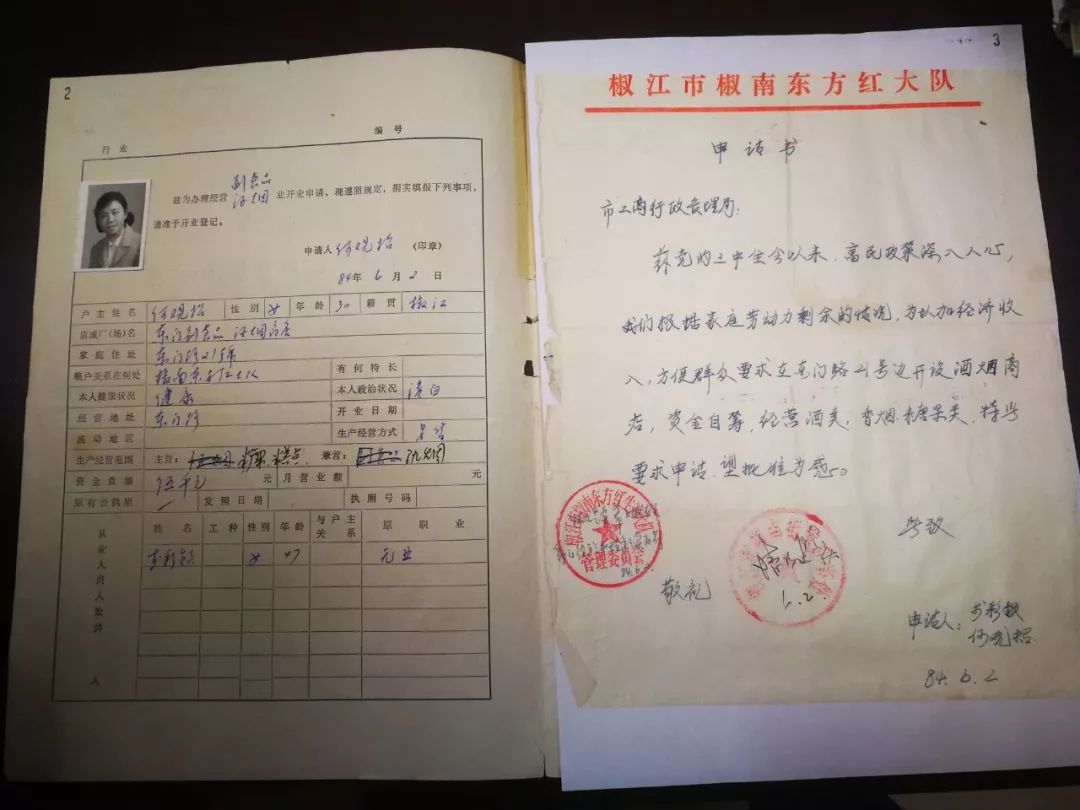 2
编号
行业
兹为办理经营副食品 酒烟业开业申请，现遵照规定，据实填报下列事项，
请准予开业登记。
申请人 何晓招 （印章）
84年6月2日
户主姓名 何晓招 性别 女 年龄 30 籍贯 椒江
店滩厂(场)名 东门副食品酒烟商店
家庭住址 东门路21号
粮户关系在何处 椒南东方红大队 有何特长
本人健康状况 健康 本人政治状况 清白
经营地址 东门路 开业日期
流动地区 生产经营方式 另售
生产经营范围 主营： 糖果 糕点 兼营：
资金数额 伍千元 元 月营业额 元
原有当执照 发照日期 执照号码
从业人员人数共 人
姓名 工种 性别 年龄 与户主关系 原职业
女 47 无业
3
椒江市椒南东方红大队
申请书
市工商行政管理局：
党的三中全会以来，富民政策深入人心，
我们根据家庭劳动力剩余的情况，为增加经济收
入，方便群众要求在东门路21号边开设酒烟商
店，资金自筹，经营酒类，香烟，糖果类，特此
要求申请，望批准为感。
此致
敬礼
管理委员会
84.6.2
6.2.
申请人：
何晓招
84.6.2